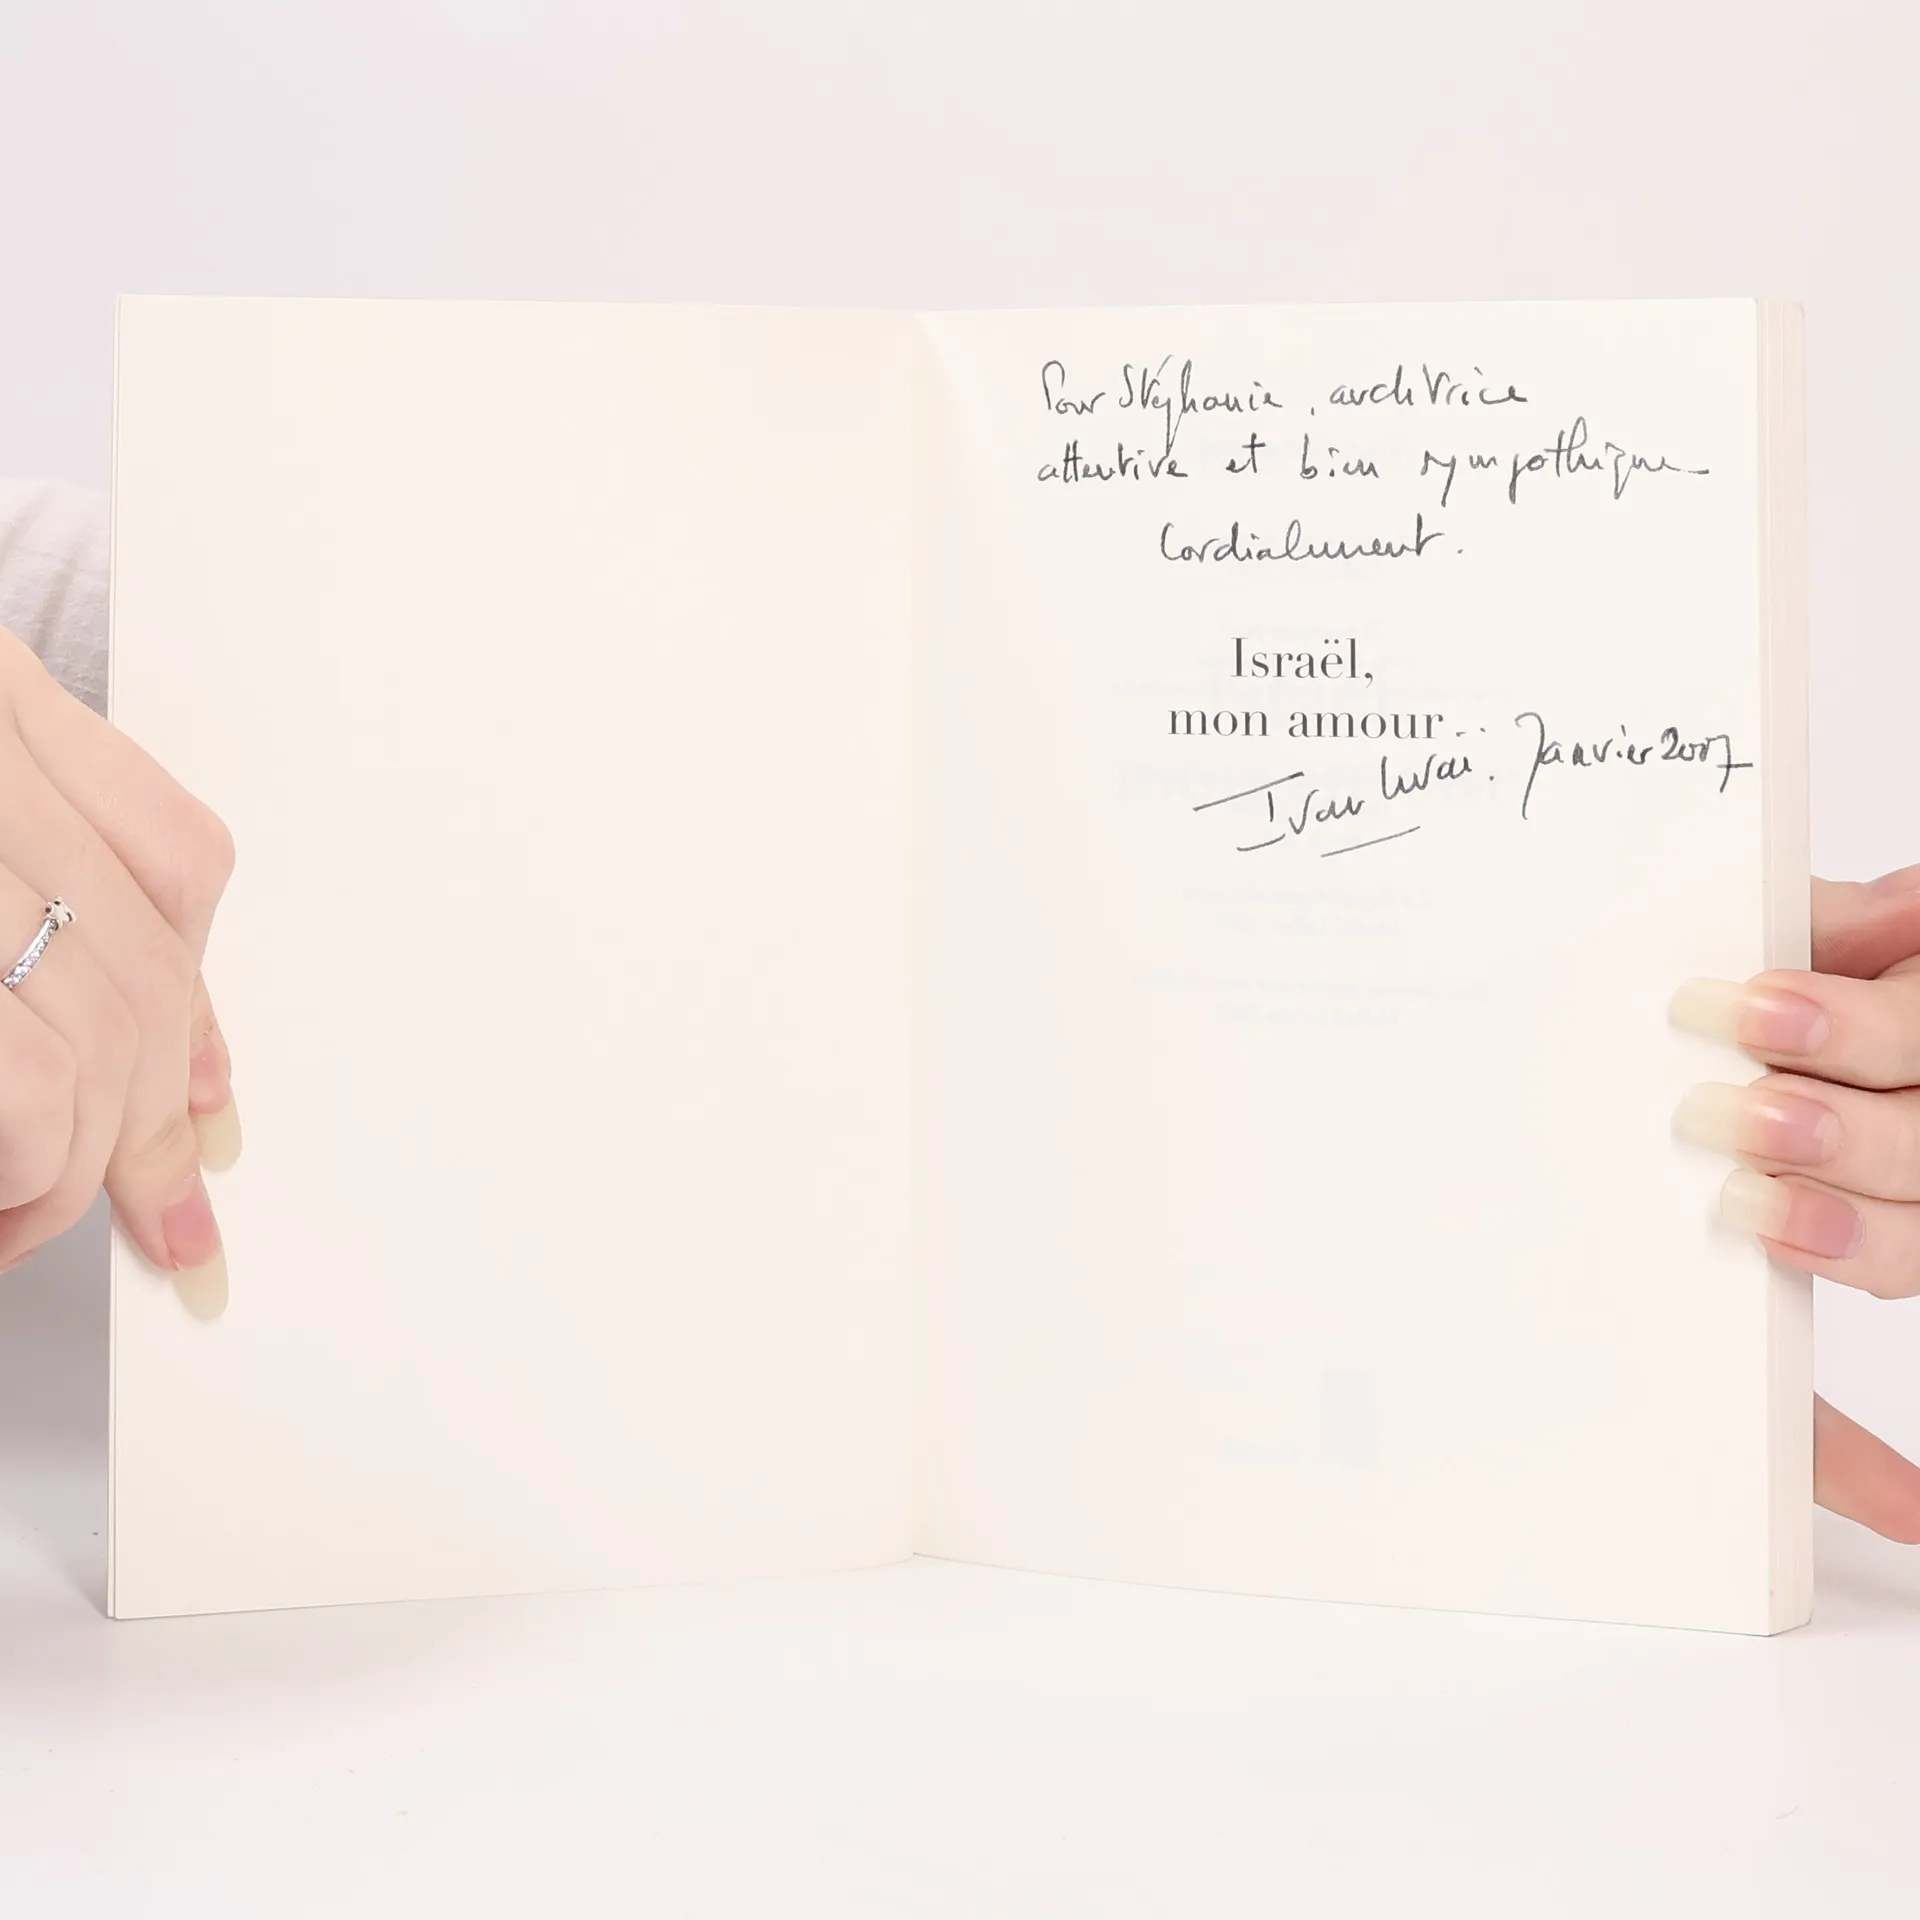 Pour Stéphanie, auditrice
attentive et bien sympathique
Cordialement.
Israël,
mon amour..
Ivan Levaï. Janvier 2007